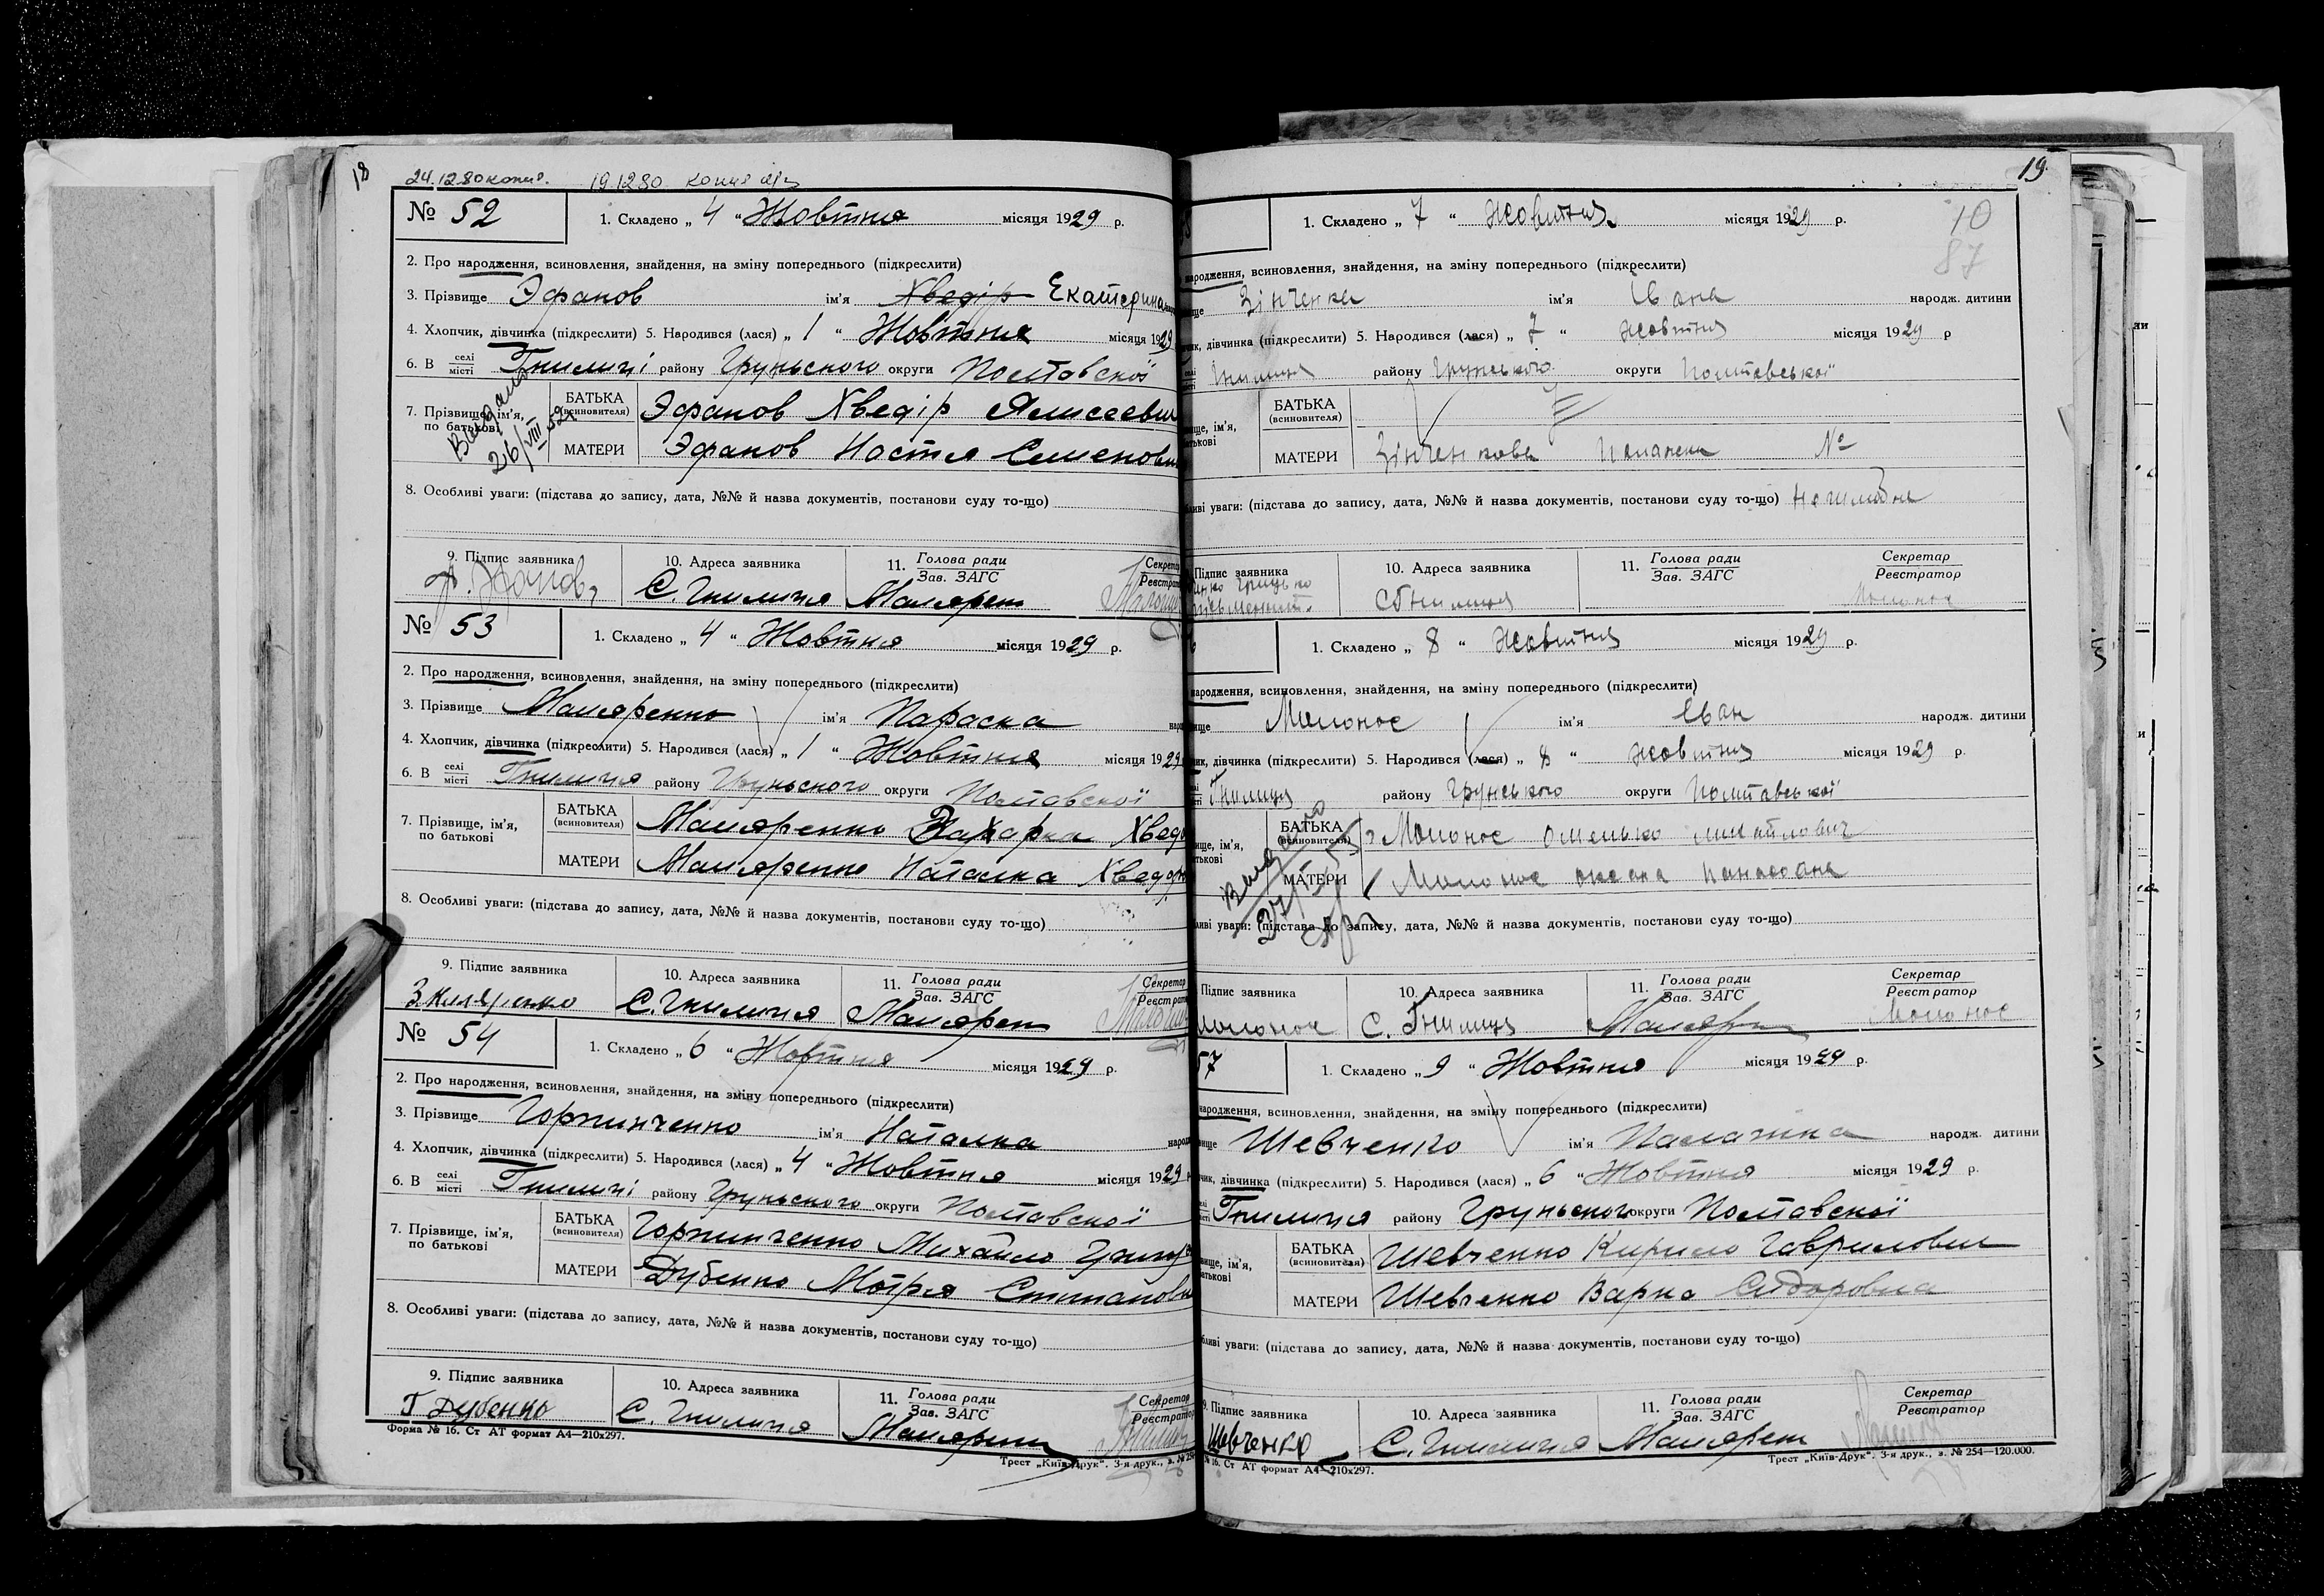 18
24.12.80 копия. 19.12.80 копия
№ 52
1. Складено „ 4 “ Жовтня місяця 1929 р.
2. Про народження, всиновлення, знайдення, на зміну попереднього (підкреслити)
3. Прізвище Эфанов ім'я Хведір Екатерина
4. Хлопчик, дівчинка (підкреслити) 5. Народився (лася) „ 1 “ Жовтня місяця 1929
6. В селі місті Гнилиці району Груньского округи Полтавскої
7. Прізвище, ім'я, по батькові
БАТЬКА (всиновителя) Эфанов Хведір
МАТЕРИ Эфанов Настя Семенов
Видано 26/VIII 52
8. Особливі уваги: (підстава до запису, дата, №№ й назва документів, постанови суду то-що)
9. Підпис заявника 10. Адреса заявника 11. Голова ради Зав. ЗАГС Секретар Реєстрат
С. Гнилиця Малярен
№ 53
1. Складено „ 4 “ Жовтня місяця 1929 р.
2. Про народження, всиновлення, знайдення, на зміну попереднього (підкреслити)
3. Прізвище Маляренко ім'я Параска
4. Хлопчик, дівчинка (підкреслити) 5. Народився (лася) „ 1 “ Жовтня місяця 1929
6. В селі місті Гнилиця району Груньского округи Полтавскої
7. Прізвище, ім'я, по батькові
БАТЬКА (всиновителя) Маляренко Захарка Хвед
МАТЕРИ Маляренко Наталка Хведор
8. Особливі уваги: (підстава до запису, дата, №№ й назва документів, постанови суду то-що)
9. Підпис заявника 10. Адреса заявника 11. Голова ради Зав. ЗАГС Секретар Реєстрат
З. Маляренко С. Гнилиця Малярен
№ 54
1. Складено „ 6 “ Жовтня місяця 1929 р.
2. Про народження, всиновлення, знайдення, на зміну попереднього (підкреслити)
3. Прізвище Горпинченко ім'я Наталка
4. Хлопчик, дівчинка (підкреслити) 5. Народився (лася) „ 4 “ Жовтня місяця 1929
6. В селі місті Гнилиці району Груньского округи Полтавскої
7. Прізвище, ім'я, по батькові
БАТЬКА (всиновителя) Горпинченко Михайло Григ
МАТЕРИ Дубенко Мотря Степанов
8. Особливі уваги: (підстава до запису, дата, №№ й назва документів, постанови суду то-що)
9. Підпис заявника 10. Адреса заявника 11. Голова ради Зав. ЗАГС Секретар Реєстратор
Г Дубенко С. Гнилиця Малярен
Форма № 16. Ст АТ формат А4—210х297.
Трест „Київ-Друк“. 3-я друк., з. № 25
19.
10
87
1. Складено „ 7 “ Жовтня місяця 1929 р.
народження, всиновлення, знайдення, на зміну попереднього (підкреслити)
Зінченка ім'я Івана народж. дитини
дівчинка (підкреслити) 5. Народився (лася) „ 7 “ Жовтня місяця 1929 р
Гнилиця району Грунського округи Полтавської
БАТЬКА (всиновителя)
МАТЕРИ Зінченкова №
уваги: (підстава до запису, дата, №№ й назва документів, постанови суду то-що)
Підпис заявника 10. Адреса заявника 11. Голова ради Зав. ЗАГС Секретар Реєстратор
Грицько С Гнилиця Молонос
1. Складено „ 8 “ Жовтня місяця 1929 р.
народження, всиновлення, знайдення, на зміну попереднього (підкреслити)
Молонос ім'я Іван народж. дитини
дівчинка (підкреслити) 5. Народився (лася) „ 8 “ Жовтня місяця 1929 р.
Гнилиця району Грунського округи Полтавської
БАТЬКА (всиновителя) Молонос Омелько Михайлович
МАТЕРИ Молонос Оксана Панасовна
Видано
уваги: (підстава до запису, дата, №№ й назва документів, постанови суду то-що)
Підпис заявника 10. Адреса заявника 11. Голова ради Зав. ЗАГС Секретар Реєстратор
Молонос С. Гнилиця Маляре Молонос
57
1. Складено „ 9 “ Жовтня місяця 1929 р.
народження, всиновлення, знайдення, на зміну попереднього (підкреслити)
Шевченко ім'я Палажка народж. дитини
дівчинка (підкреслити) 5. Народився (лася) „ 6 “ Жовтня місяця 1929 р.
Гнилиця району Груньского округи Полтавскої
БАТЬКА (всиновителя) Шевченко Кирило Гаврилович
МАТЕРИ Шевченко Варка Сидоровна
уваги: (підстава до запису, дата, №№ й назва документів, постанови суду то-що)
9. Підпис заявника 10. Адреса заявника 11. Голова ради Зав. ЗАГС Секретар Реєстратор
Шевченко С. Гнилиця Малярен
№ 16. Ст АТ формат А4—210х297.
Трест „Київ-Друк“. 3-я друк., з. № 254—120.000.